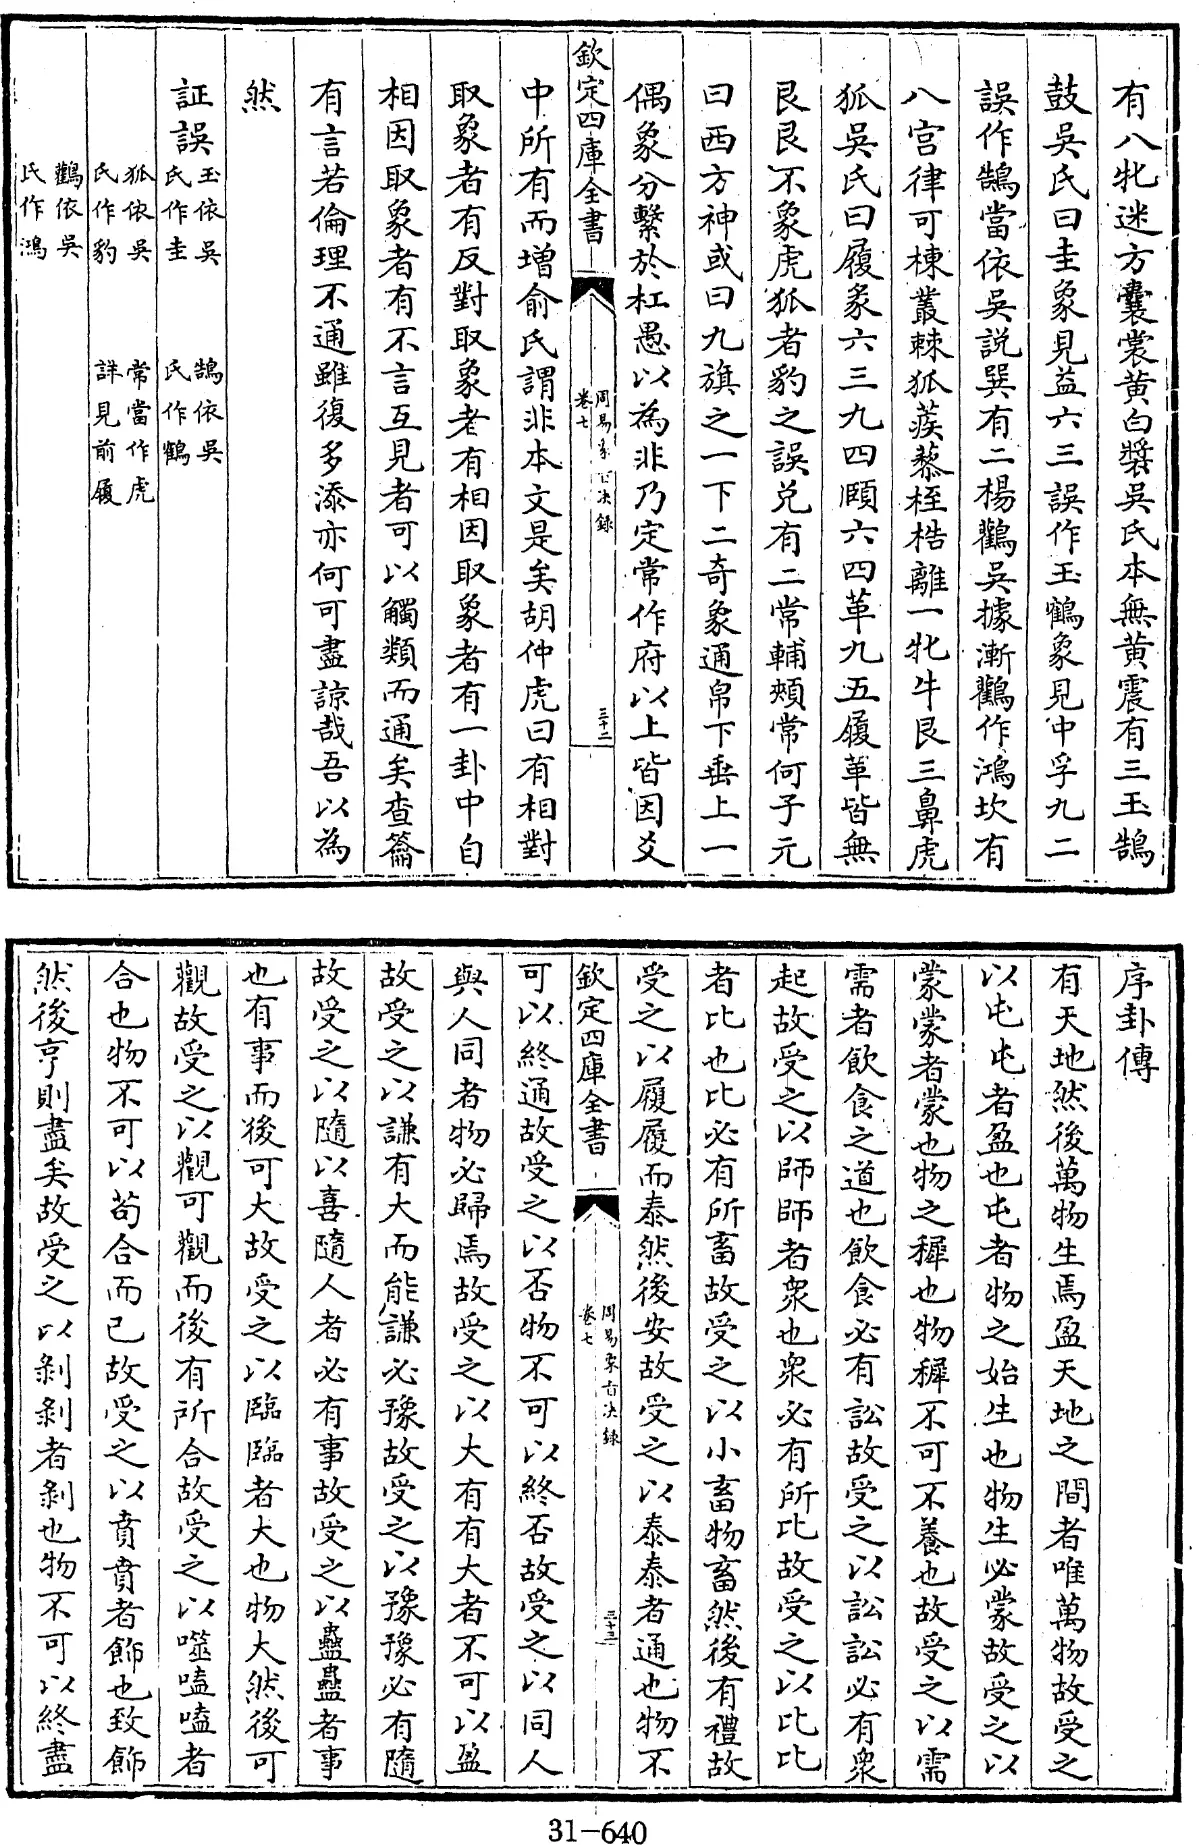 有八牝迷方囊裳黄白漿吳氏本無黄震有三玉鵠
鼓吳氏曰圭象見益六三誤作玉鶴象見中孚九二
誤作鵠當依吳説巽有二楊鸛吳據漸鸛作鴻坎有
八宮律可棟叢棘狐蒺藜桎梏離一牝牛艮三鼻虎
狐吳氏曰履彖六三九四頤六四革九五履革皆無
艮艮不象虎狐者豹之誤兑有二常輔頰常何子元
曰西方神或曰九旗之一下二奇象通帛下垂上一
偶象分繫於杠愚以為非乃定常作府以上皆因爻
欽定四庫全書
周易象旨決録
卷七
三十二
中所有而增俞氏謂非本文是矣胡仲虎曰有相對
取象者有反對取象者有相因取象者有一卦中自
相因取象者有不言互見者可以觸類而通矣查籥
有言若倫理不通雖復多添亦何可盡諒哉吾以為
然
証誤 玉依吳氏作圭 鵠依吳氏作鶴
狐依吳氏作豹 常當作虎詳見前履
鸛依吳氏作鴻
序卦傳
有天地然後萬物生焉盈天地之間者唯萬物故受之
以屯屯者盈也屯者物之始生也物生必蒙故受之以
蒙蒙者蒙也物之穉也物穉不可不養也故受之以需
需者飲食之道也飲食必有訟故受之以訟訟必有衆
起故受之以師師者衆也衆必有所比故受之以比比
者比也比必有所畜故受之以小畜物畜然後有禮故
受之以履履而泰然後安故受之以泰泰者通也物不
欽定四庫全書
周易象旨決録
卷七
三十三
可以終通故受之以否物不可以終否故受之以同人
與人同者物必歸焉故受之以大有有大者不可以盈
故受之以謙有大而能謙必豫故受之以豫豫必有隨
故受之以隨以喜隨人者必有事故受之以蠱蠱者事
也有事而後可大故受之以臨臨者大也物大然後可
觀故受之以觀可觀而後有所合故受之以噬嗑嗑者
合也物不可以苟合而已故受之以賁賁者飾也致飾
然後亨則盡矣故受之以剝剝者剝也物不可以終盡
31-640